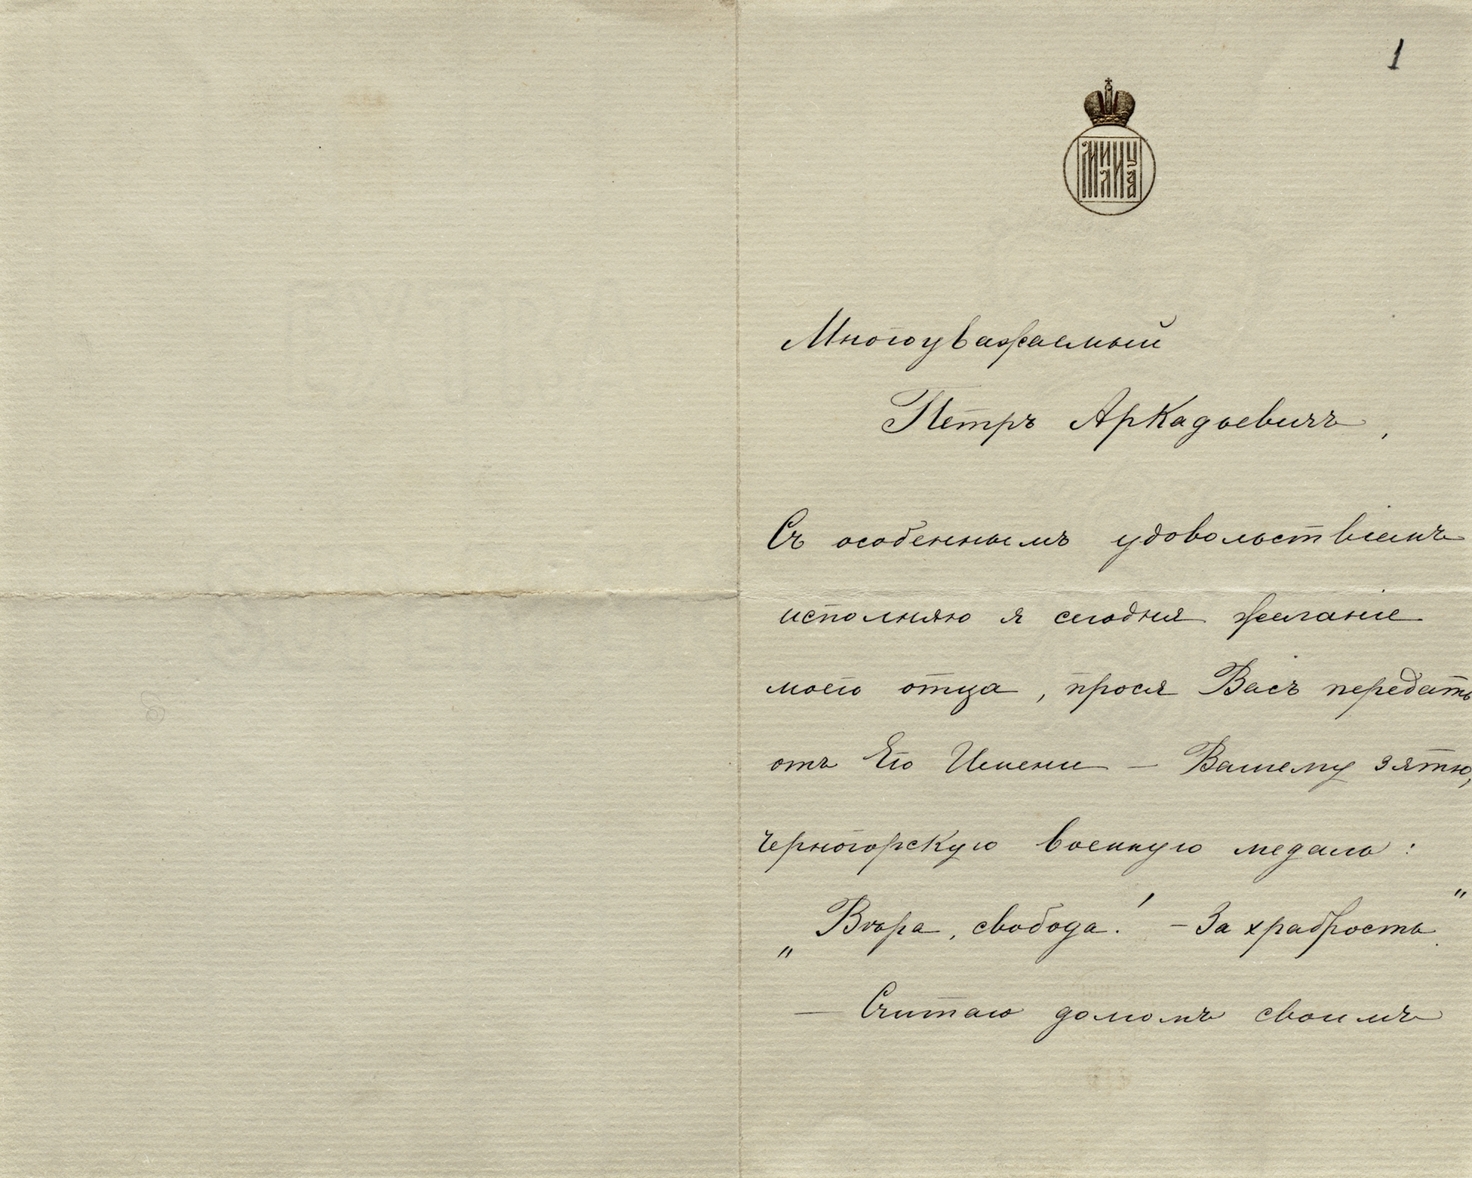 1
МИЛИЦА
Многоуважаемый
Петръ Аркадьевичъ,
Съ особеннымъ удовольствіемъ
исполняю я сегодня желаніе
моего отца, прося Васъ передать
отъ Его Имени — Вашему зятю,
черногорскую военную медаль:
„Вѣра, свобода! — За храбрость".
— Считаю долгомъ своимъ